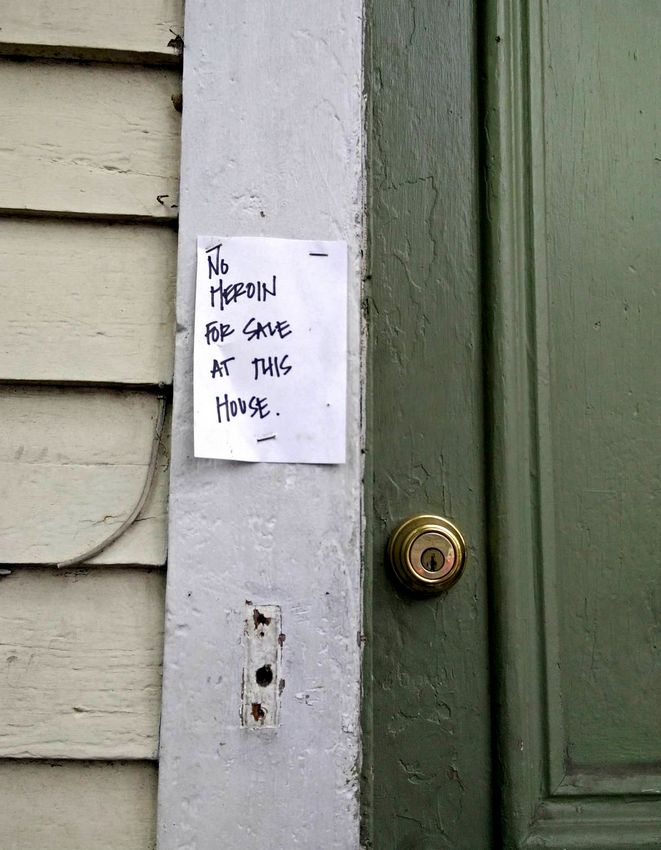 NO
HEROIN
FOR SALE
AT THIS
HOUSE.